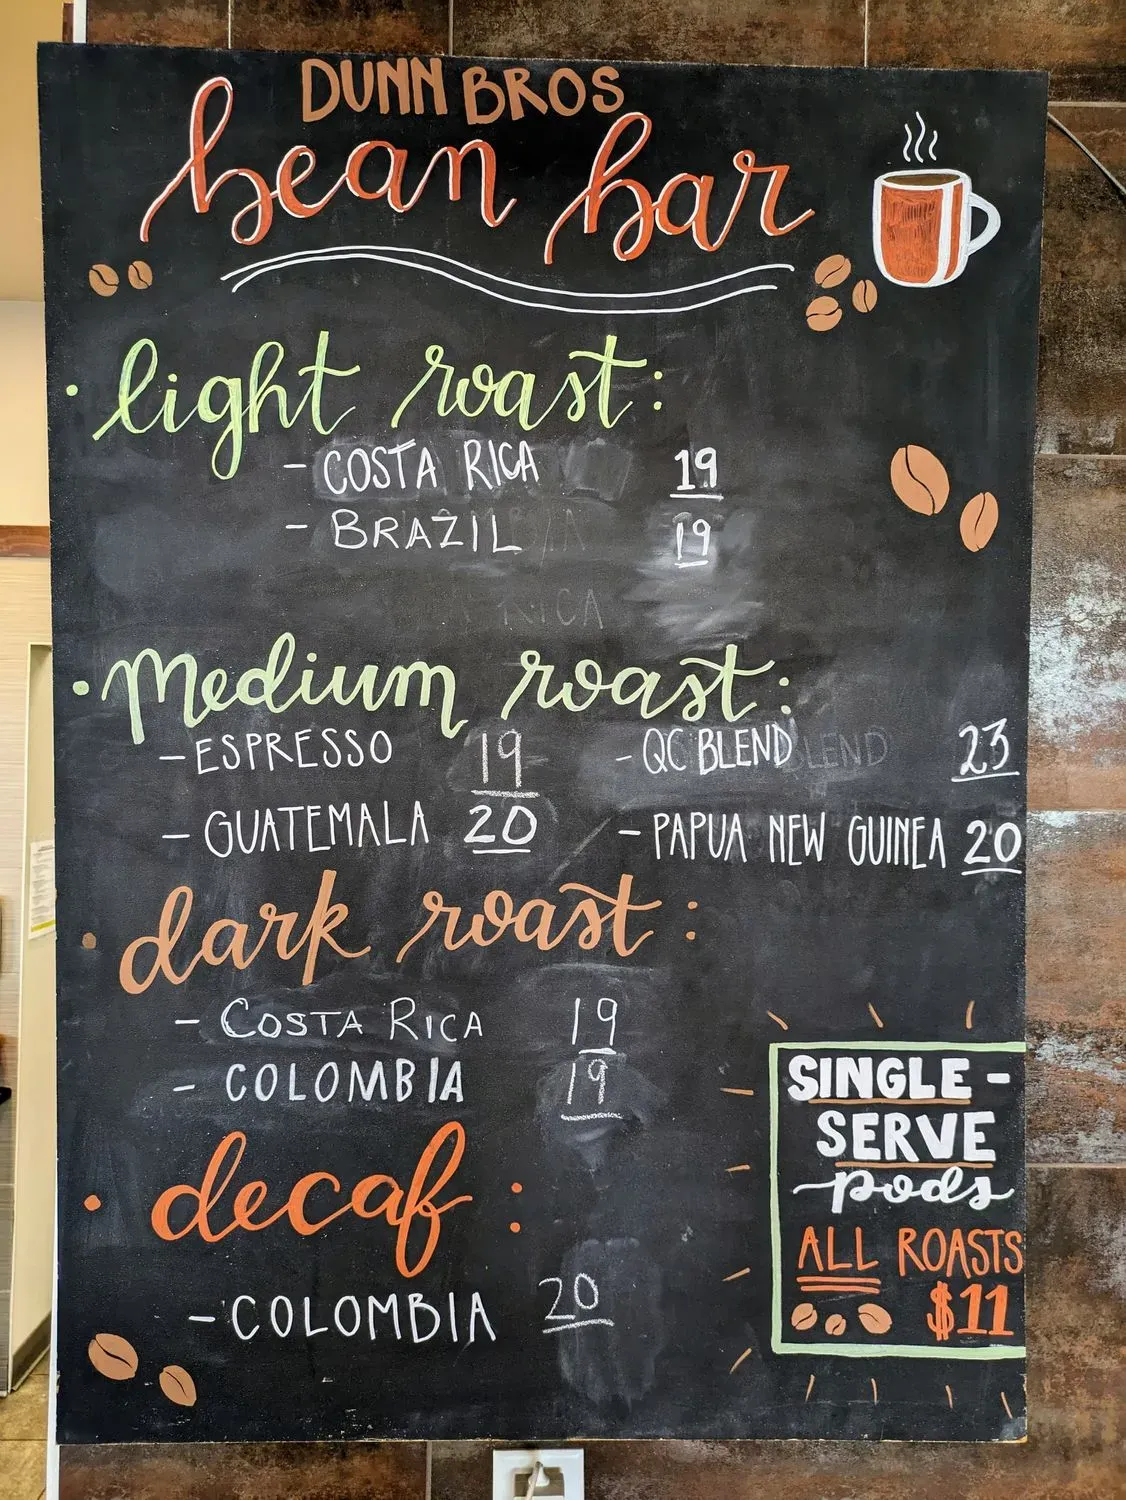 DUNN BROS
bean bar
• light roast:
- COSTA RICA 19
- BRAZIL 19
RICA
• Medium roast:
- ESPRESSO 19 - QC BLEND BLEND 23
- GUATEMALA 20 - PAPUA NEW GUINEA 20
• dark roast:
- COSTA RICA 19
- COLOMBIA 19
• decaf:
- COLOMBIA 20
SINGLE-
SERVE
pods
ALL ROASTS
$11